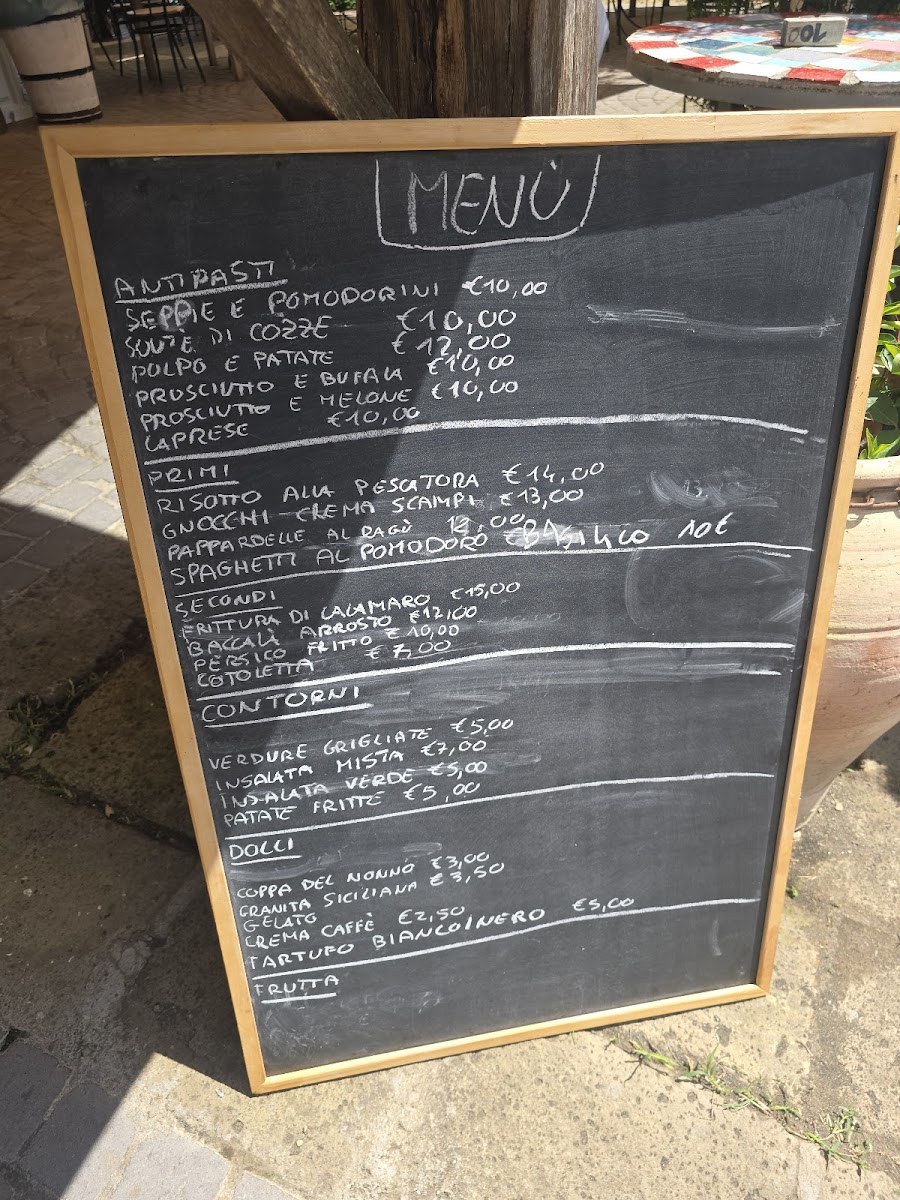 MENÙ
ANTIPASTI
SEPPIE E POMODORINI €10,00
SOUTE DI COZZE €10,00
POLPO E PATATE €12,00
PROSCIUTTO E BUFALA €10,00
PROSCIUTTO E MELONE €10,00
CAPRESE €10,00
PRIMI
RISOTTO ALLA PESCATORA €14,00
GNOCCHI CREMA SCAMPI €13,00
PAPPARDELLE AL RAGÙ 12,00
SPAGHETTI AL POMODORO €BASILICO 10€
SECONDI
FRITTURA DI CALAMARO €15,00
BACCALÀ ARROSTO €12,00
PERSICO FRITTO €10,00
COTOLETTA €7,00
CONTORNI
VERDURE GRIGLIATE €5,00
INSALATA MISTA €7,00
INSALATA VERDE €5,00
PATATE FRITTE €5,00
DOLCI
COPPA DEL NONNO €3,00
GRANITA SICILIANA €3,50
GELATO
CREMA CAFFÈ €2,50
TARTUFO BIANCO/NERO €5,00
FRUTTA
100